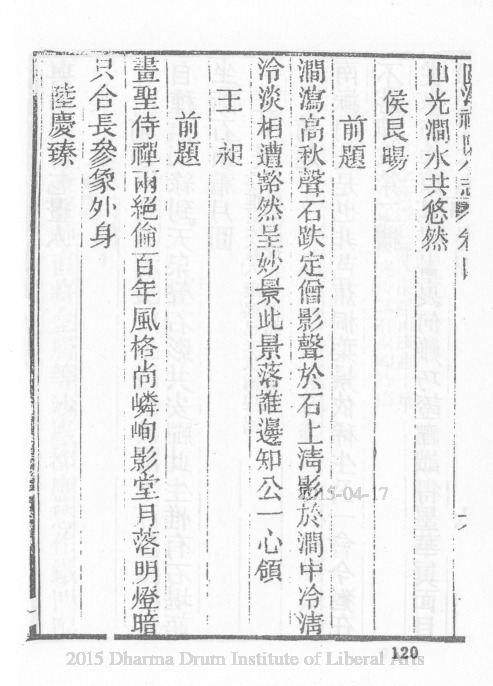 山光澗水共悠然
侯艮暘
前題
澗瀉高秋聲石趺定僧影聲於石上清影於澗中冷清
泠淡相遭豁然呈妙景此景落誰邊知公一心領
王昶
前題
畫聖侍禪兩絕倫百年風格尚嶙峋影堂月落明燈暗
只合長參象外身
陸慶臻
2015-04-17
120
2015 Dharma Drum Institute of Liberal Arts